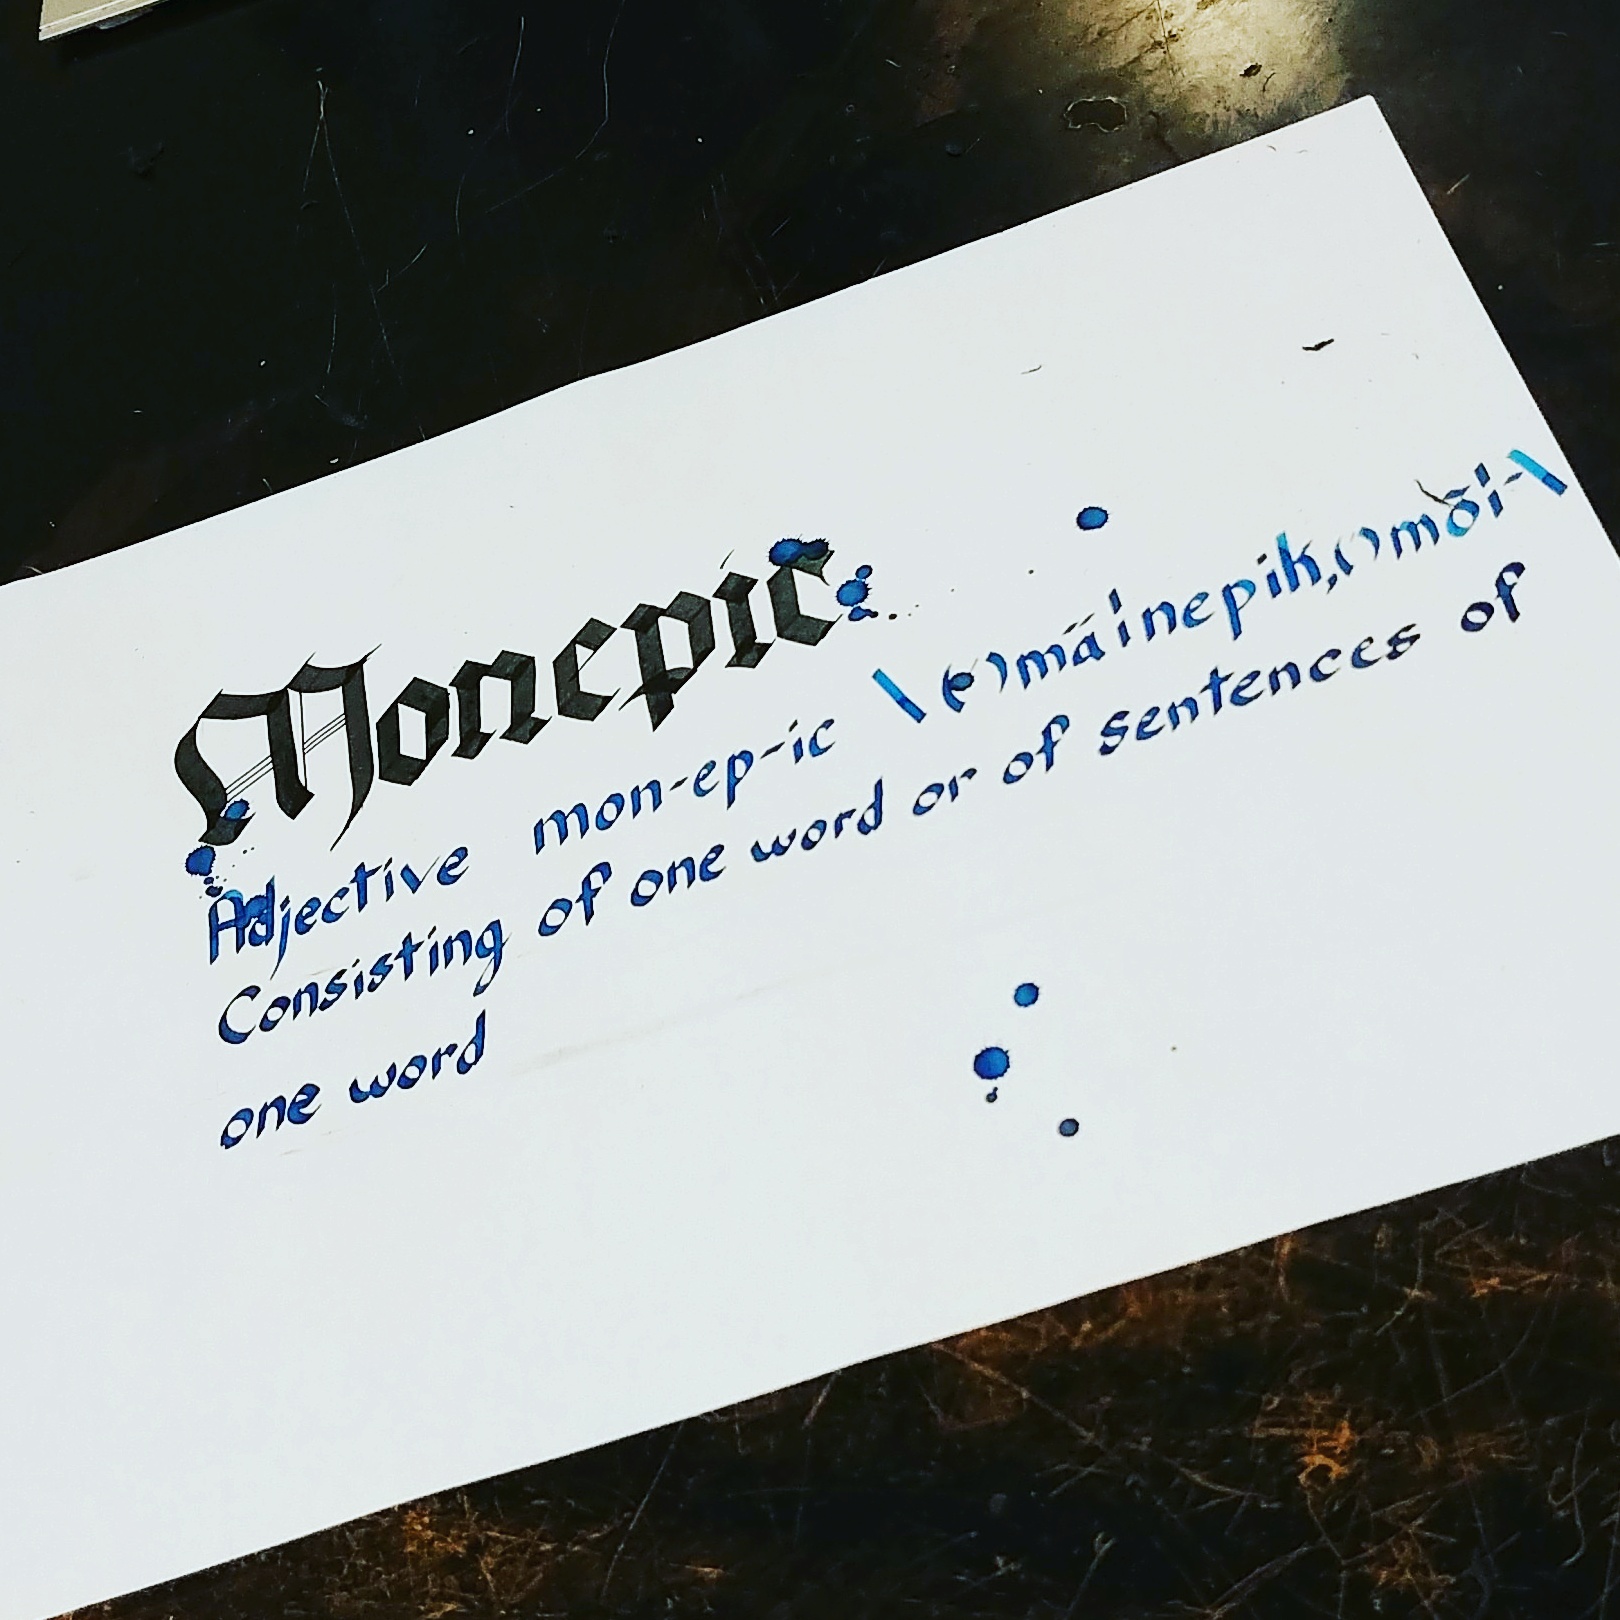 Monepic
Adjective mon-ep-ic \(ˈ)mäˈnepik, (ˈ)mōˈ-\
Consisting of one word or of sentences of
one word